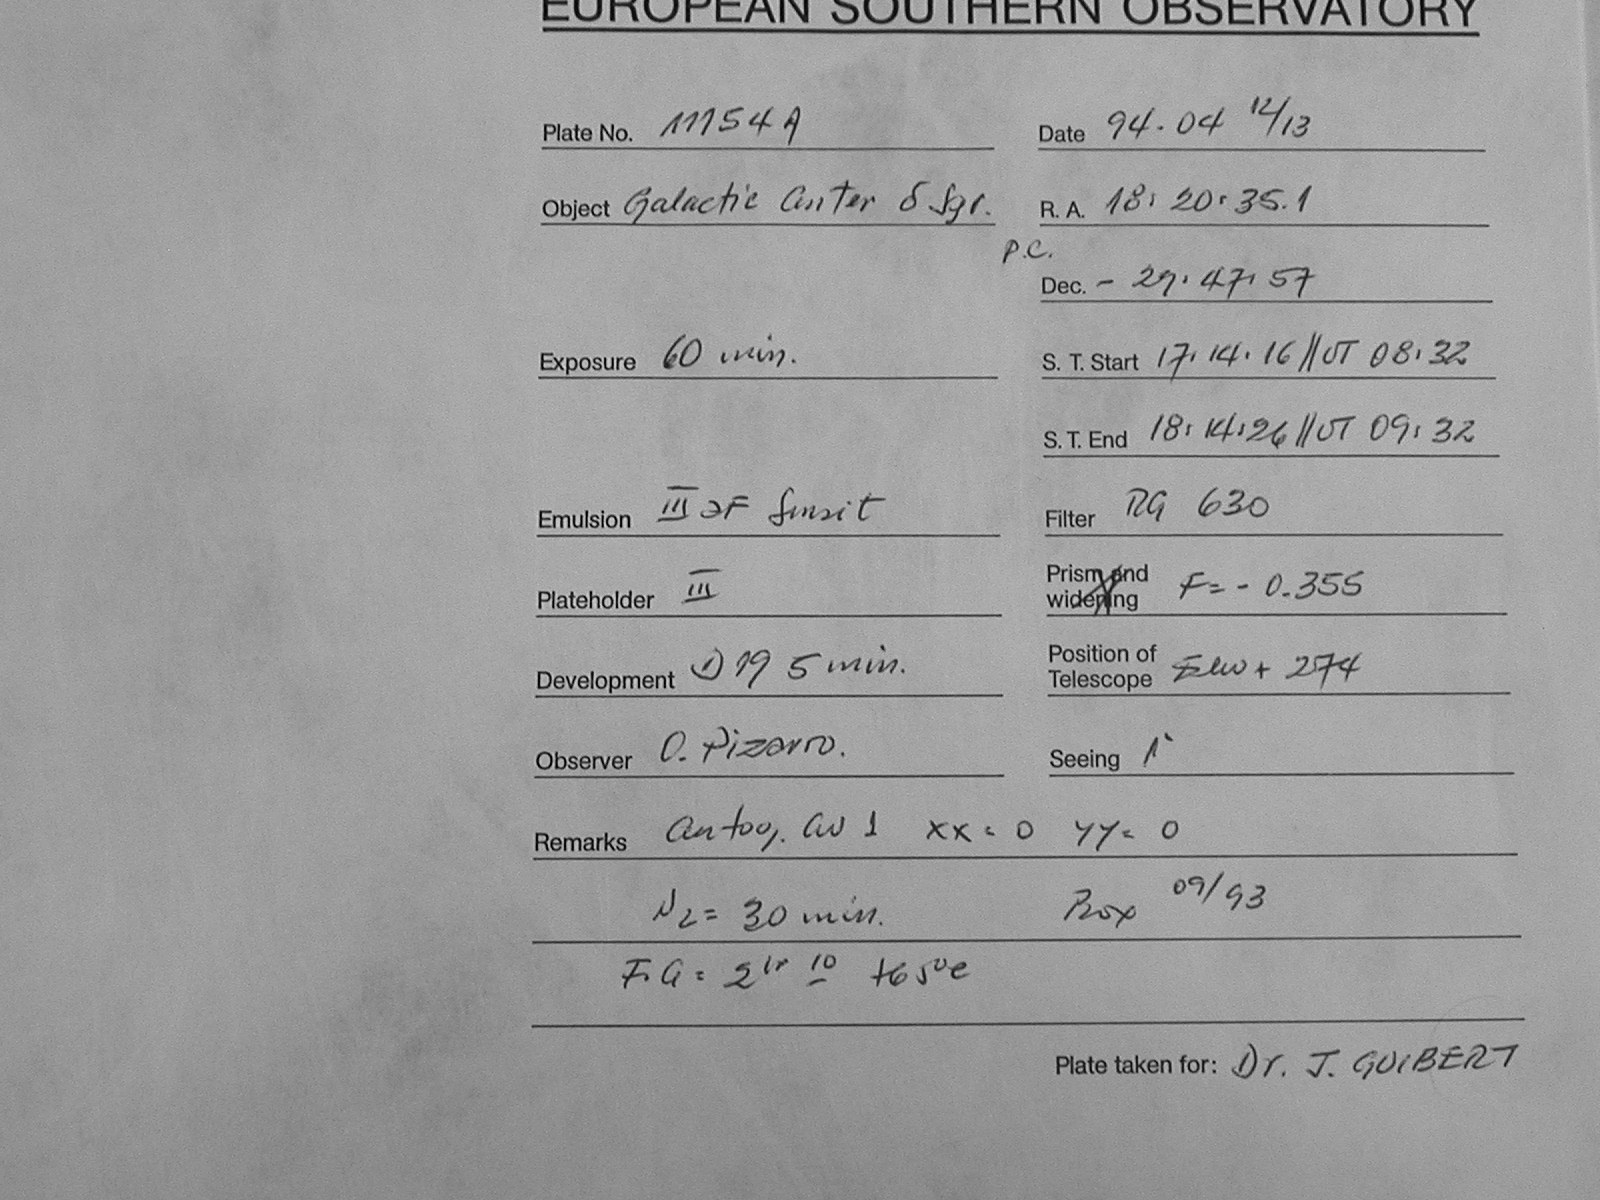 EUROPEAN SOUTHERN OBSERVATORY
Plate No. 11154 A Date 94.04 12/13
Object Galactic Center δ Sgr. R. A. 18: 20: 35.1
P.C.
Dec. - 29: 47: 57
Exposure 60 min. S. T. Start 17: 14: 16 // UT 08:32
S. T. End 18: 14: 26 // UT 09:32
Emulsion III aF Filter RG 630
Plateholder III Prism and widening F= - 0.355
Development D 19 5 min. Position of Telescope + 274
Observer O. Pizarro. Seeing 1"
Remarks xx = 0 yy = 0
N2 = 30 min. 09/93
F.G =
Plate taken for: Dr. J. GUIBERT